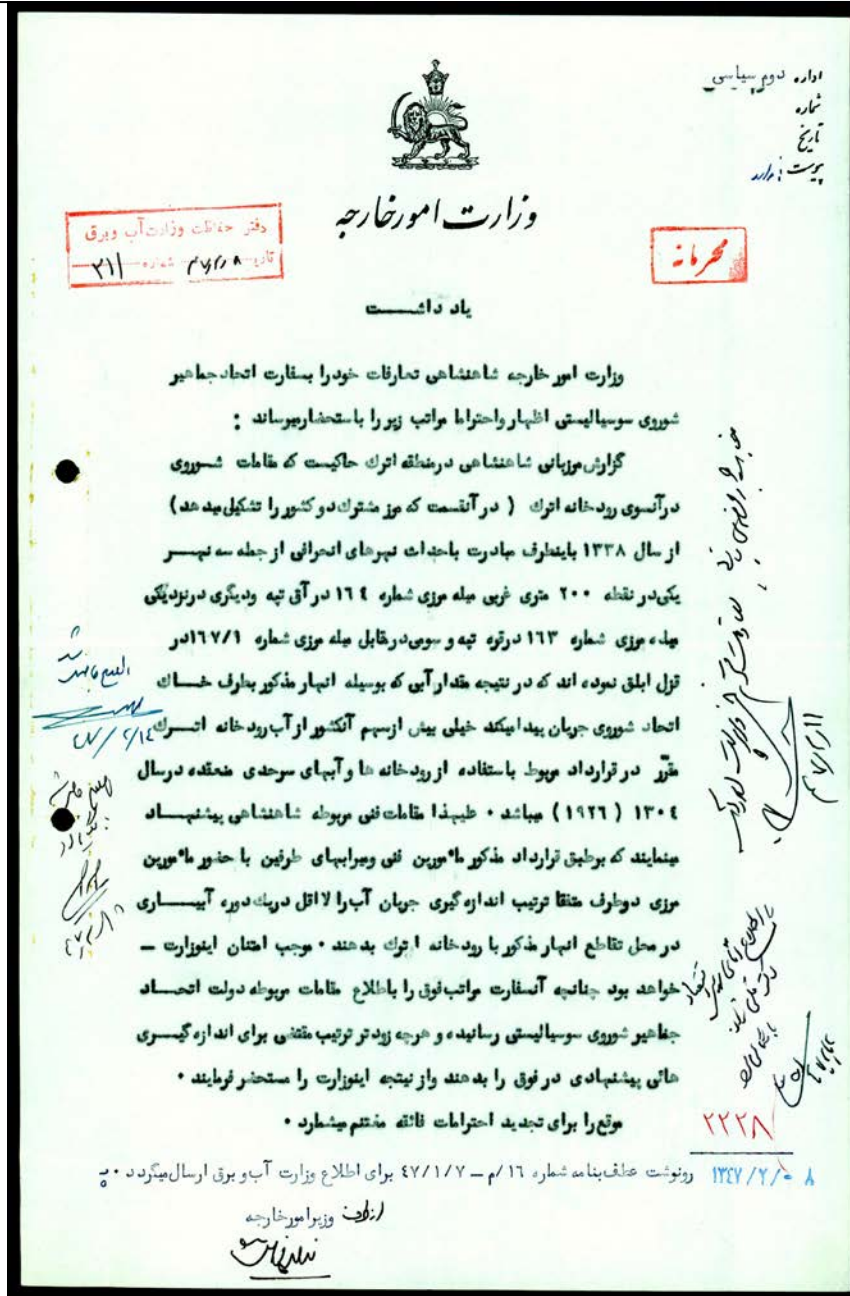 اداره دوم سیاسی
شماره
تاریخ
پیوست : دارد
وزارت امور خارجه
محرمانه
دفتر حفاظت وزارت آب و برق
شماره ٢١١
یاد داشـــت
وزارت امور خارجه شاهنشاهی تعارفات خود را بسفارت اتحاد جماهیر
شوروی سوسیالیستی اظهار واحتراما مراتب زیر را باستحضار میرساند :
گزارش مرزبانی شاهنشاهی در منطقه اترك حاکیست که مقامات شـــوروی
در آنسوی رود خانه اترك ( در آنقسمت که مرز مشترك دو کشور را تشکیل میدهد )
از سال ١٣٣٨ باینطرف مبادرت باحداث نهرهای انحرافی از جمله سه نهـــر
یکی در نقطه ٢٠٠ متری غربی میله مرزی شماره ١٦٤ در آق تپه ودیگری در نزدیکی
میله مرزی شماره ١٦٣ در قره تپه و سومی در مقابل میله مرزی شماره ١٦٧/١ در
قزل ابلق نموده اند که در نتیجه مقدار آبی که بوسیله انهار مذکور بطرف خـــاك
اتحاد شوروی جریان پیدا میکند خیلی بیش از سهم آنکشور از آب رود خانه اتـــرك
مقرر در قرارداد مربوط باستفاده از رودخانه ها و آبهای سرحدی منعقده در سال
١٣٠٤ ( ١٩٢٦ ) میباشد ٠ علیهذا مقامات فنی مربوطه شاهنشاهی پیشنهـــاد
مینمایند که بر طبق قرارداد مذکور مأمورین فنی ومیرابهای طرفین با حضور مأمورین
مرزی دوطرف متفقا ترتیب اندازه گیری جریان آب را لااقل در یك دوره آبیـــاری
در محل تقاطع انهار مذکور با رود خانه اترك بدهند ٠ موجب امتنان اینوزارت ــ
خواهد بود چنانچه آنسفارت مراتب فوق را باطلاع مقامات مربوطه دولت اتحـــاد
جماهیر شوروی سوسیالیستی رسانیده و هرچه زودتر ترتیب مقتضی برای اندازه گیـــری
هائی پیشنهادی در فوق را بدهند واز نتیجه اینوزارت را مستحضر فرمایند ٠
موقع را برای تجدید احترامات فائقه مغتنم میشمارد ٠
٢٢٢٨
١٣٤٧/٢/٠٨
رونوشت عطف بنامه شماره ١٦/م ــ ٤٧/١/٧ برای اطلاع وزارت آب و برق ارسال میگردد ٠
از طرف وزیر امور خارجه